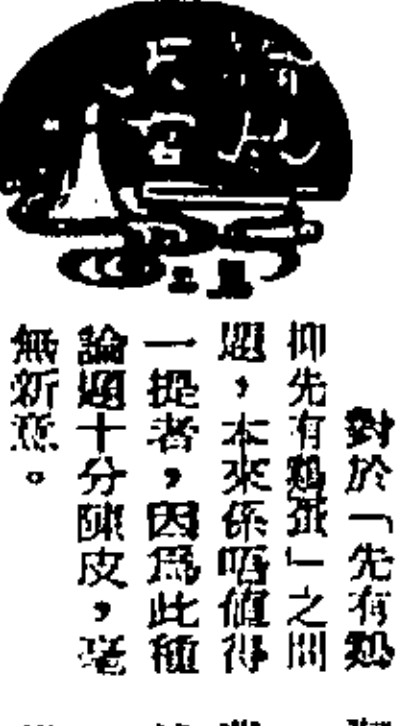 對於「先有鷄
抑先有鷄蛋」之問
題，本來係唔値得
一提者，因爲此種
論題十分陳皮，毫
無新意。